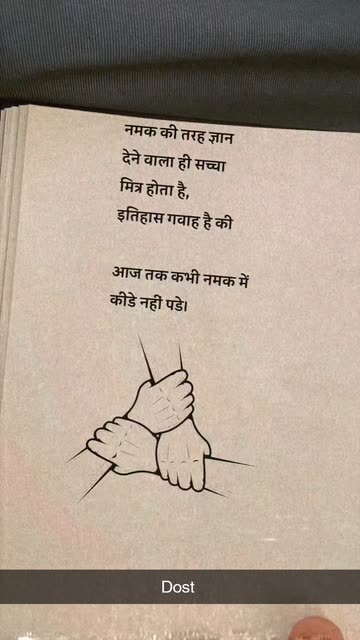 नमक की तरह ज्ञान
देने वाला ही सच्चा
मित्र होता है,
इतिहास गवाह है की
आज तक कभी नमक में
कीडे नहीं पडे।
Dost